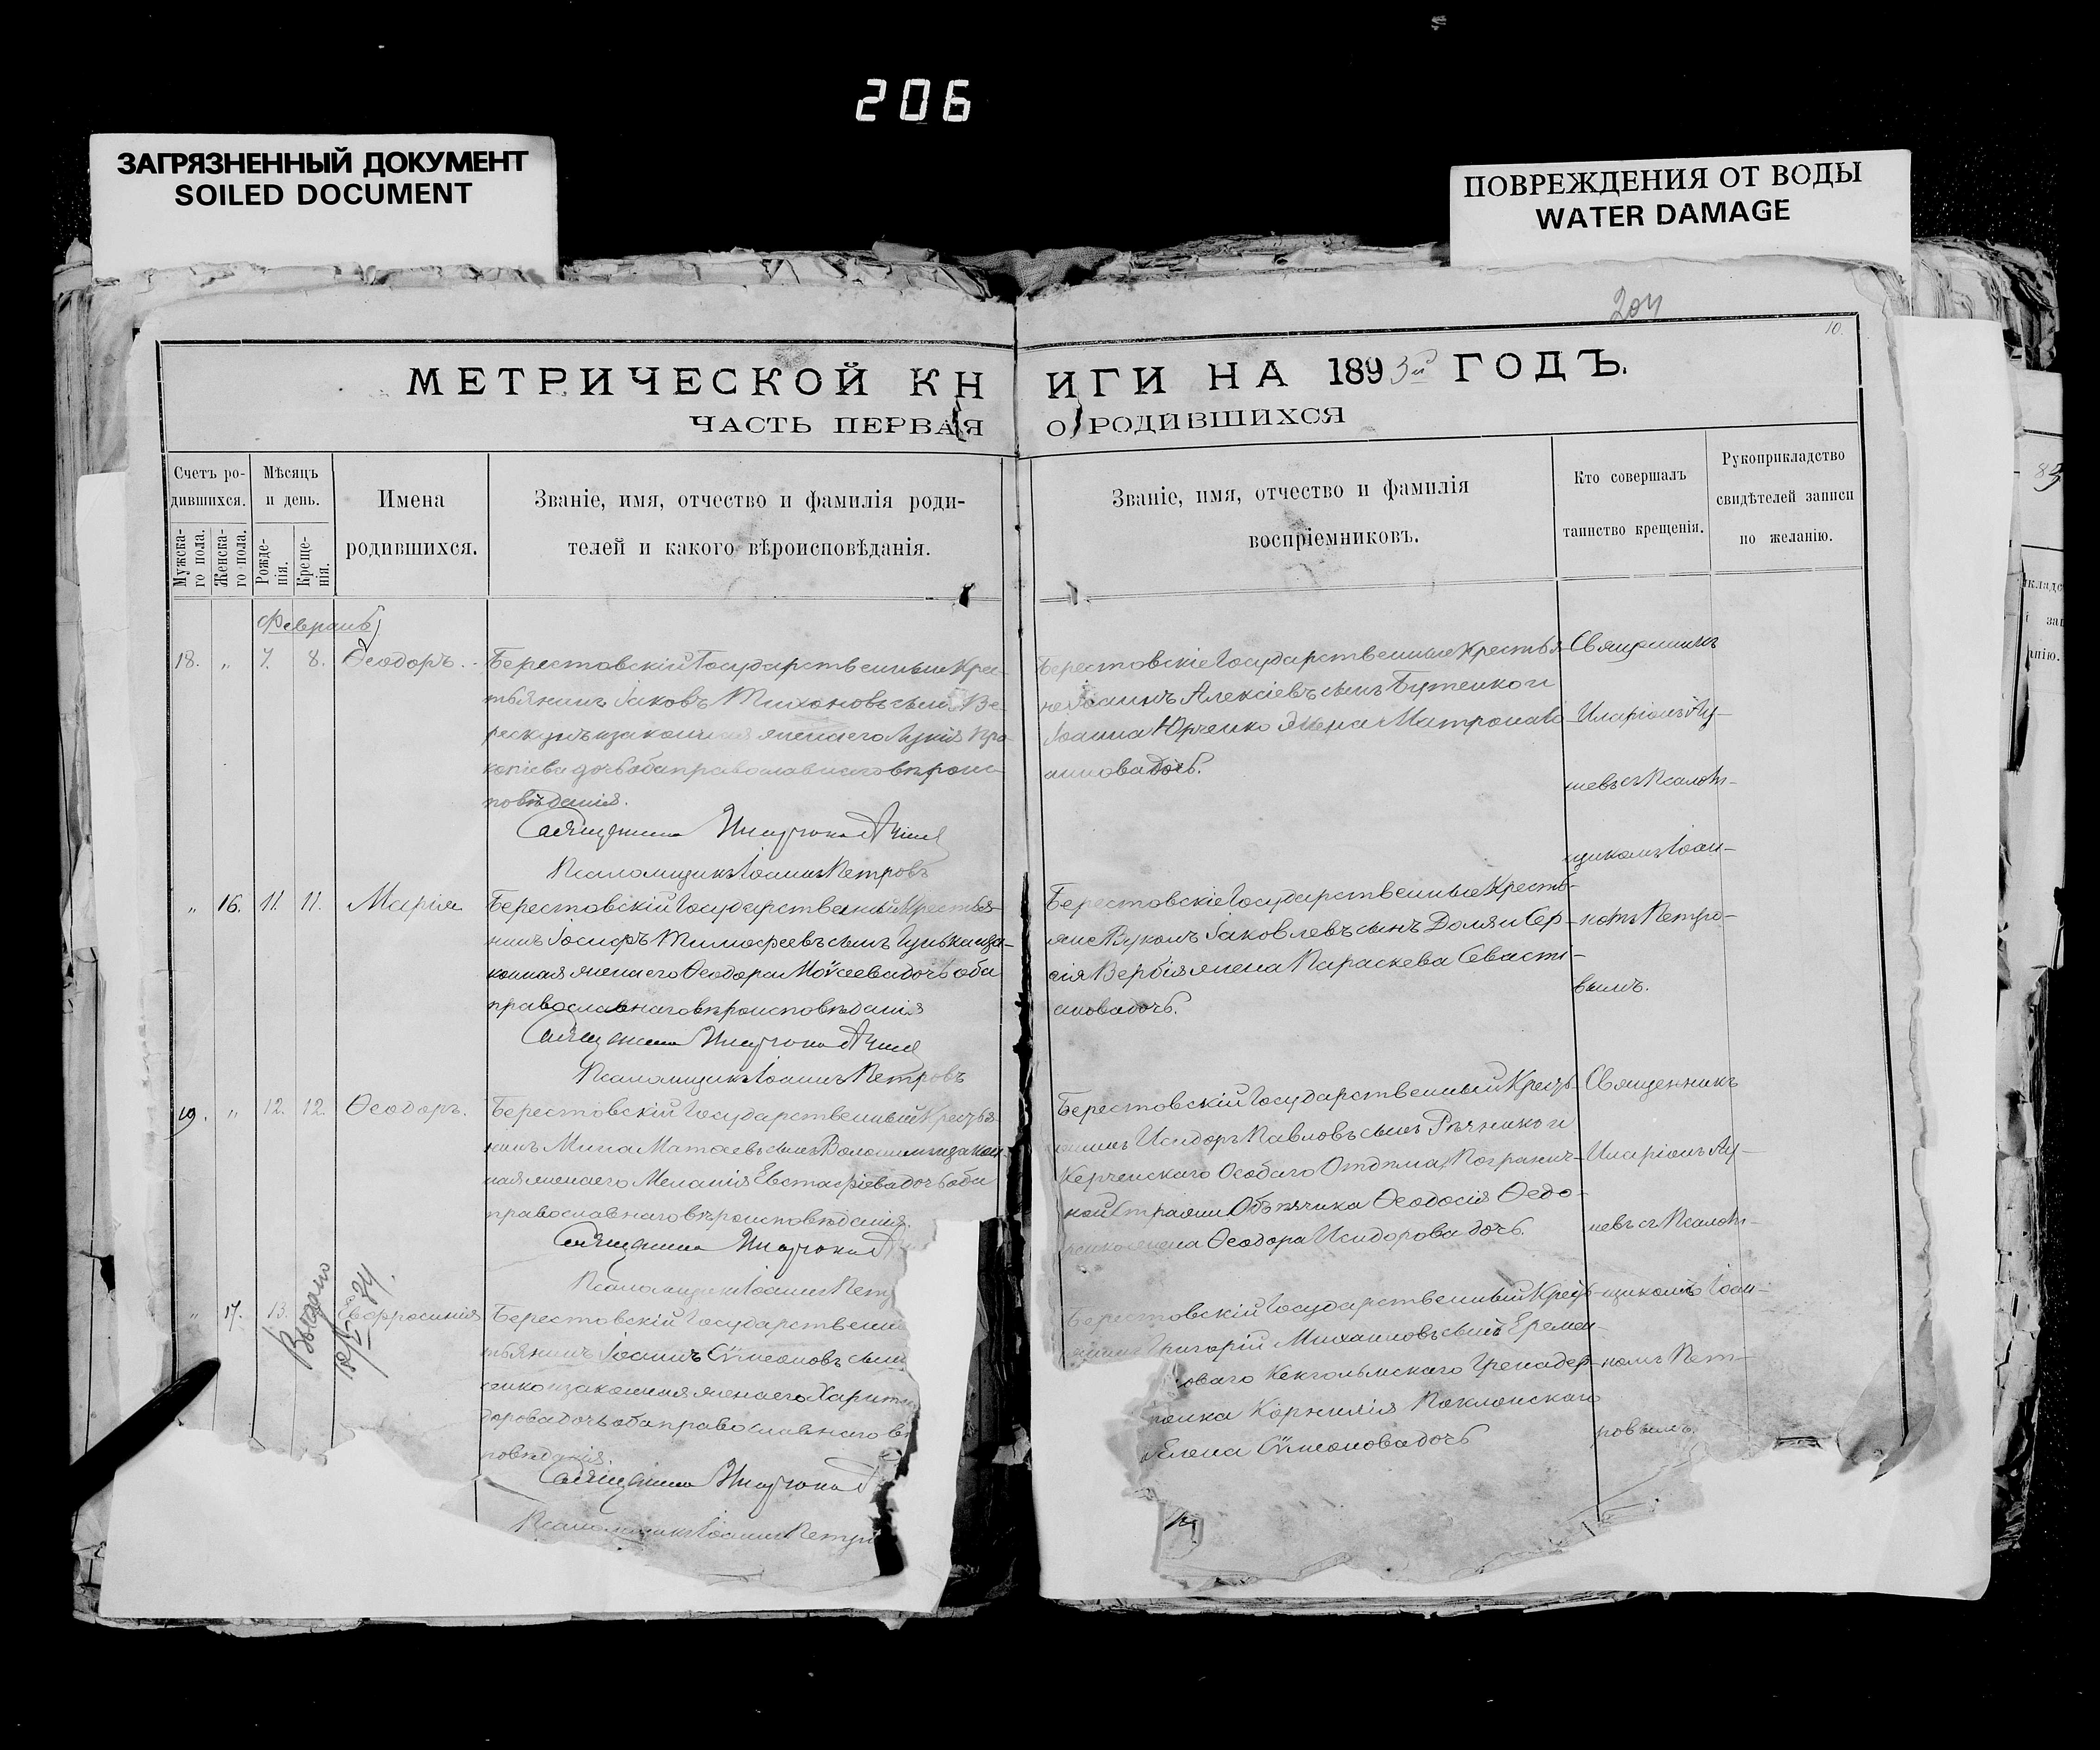 206
ЗАГРЯЗНЕННЫЙ ДОКУМЕНТ
SOILED DOCUMENT
ПОВРЕЖДЕНИЯ ОТ ВОДЫ
WATER DAMAGE
10.
МЕТРИЧЕСКОЙ КНИГИ НА 1893й ГОДЪ.
ЧАСТЬ ПЕРВАЯ О РОДИВШИХСЯ
Счетъ ро-
дившихся.
Мужска-
го пола.
Женска-
го пола.
Мѣсяцъ
и день.
Рожде-
нія.
Креще-
нія.
Имена
родившихся.
Званіе, имя, отчество и фамилія роди-
телей и какого вѣроисповѣданія.
Званіе, имя, отчество и фамилія
воспріемниковъ.
Кто совершалъ
таинство крещенія.
Рукоприкладство
свидѣтелей записи
по желанію.
Февраль
18. „ 7. 8. Ѳеодоръ.
Берестовскій Государственный Крес-
тьянинъ Іаковъ Тихоновъ сынъ Ве-
рескунъ и законная жена его Лукія Про-
копіева дочь оба православнаго вѣроис-
повѣданія.
Священникъ
Псаломщикъ Іоаннъ Петровъ
Берестовскіе Государственные Крестья-
не Іоаннъ Алексіевъ сынъ Бутенко и
Іоанна Юрченко жена Матрона
дочь.
Священникъ
Иларіонъ
съ Псалом-
щикомъ Іоан-
номъ Петро-
вымъ.
„ 16. 11. 11. Марія
Берестовскій Государственный Крестья-
нинъ Іосифъ Тимофеевъ сынъ и за-
конная жена его Ѳеодора Моѵсеева дочь оба
православнаго вѣроисповѣданія
Священникъ
Псаломщикъ Іоаннъ Петровъ
Берестовскіе Государственные Кресть-
яне Вуколъ Іаковлевъ сынъ Доля и Сер-
гія Вербія жена Параскева Севасти-
анова дочь.
19. „ 12. 12. Ѳеодоръ.
Берестовскій Государственный Крестья-
нинъ Мина Матѳевъ сынъ и закон-
ная жена его Меланія Евстафіева дочь оба
православнаго вѣроисповѣданія.
Священникъ
Псаломщикъ Іоаннъ Петр
Берестовскій Государственный Кресть-
янинъ Исидоръ Павловъ сынъ и
Керченскаго Особаго Отдѣла Погранич-
ной Стражи Объѣзчика Ѳеодосія Ѳедо-
жена Ѳеодора Исидорова дочь.
Священникъ
Иларіонъ
съ Псалом-
щикомъ Іоан-
номъ Пет-
ровымъ.
„ 17. 13. Евфросинія
Выдано
Берестовскій Государственн
тьянинъ Іоаннъ Сѵмеоновъ сынъ
енко и законная жена его Харит
дорова дочь оба православнаго вѣ
повѣданія
Священникъ
Псаломщикъ Іоаннъ Петро
Берестовскій Государственный Кресть-
янинъ Григорій Михаиловъ сынъ Еремен-
оваго Кексгольмскаго Гренадер-
полка Корнилія Поклонскаго
Елена Сѵмеонова дочь